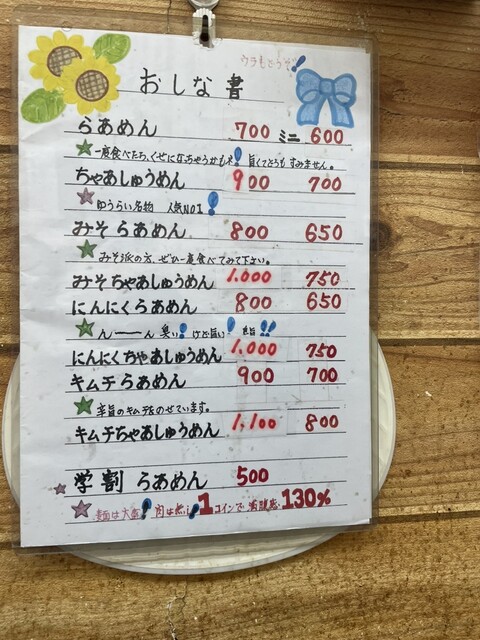 ウラもどうぞ!
おしな書
らあめん 700 ミニ 600
★一度食べたら、くせになっちゃうかもネ! 旨くてどうも すみません。
ちゃあしゅうめん 900 700
★ゆうらい名物 人気NO1!
みそらあめん 800 650
★みそ派の方、ぜひ一度食べてみて下さい。
みそちゃあしゅうめん 1,000 750
にんにくらあめん 800 650
★ん――ん 臭い! けど旨い!
にんにくちゃあしゅうめん 1,000 750
キムチらあめん 900 700
★辛旨のキムチをのせています。
キムチちゃあしゅうめん 1,100 800
★学割 らあめん 500
★麺は大盛! 肉は無し! 1コインで満腹感 130%